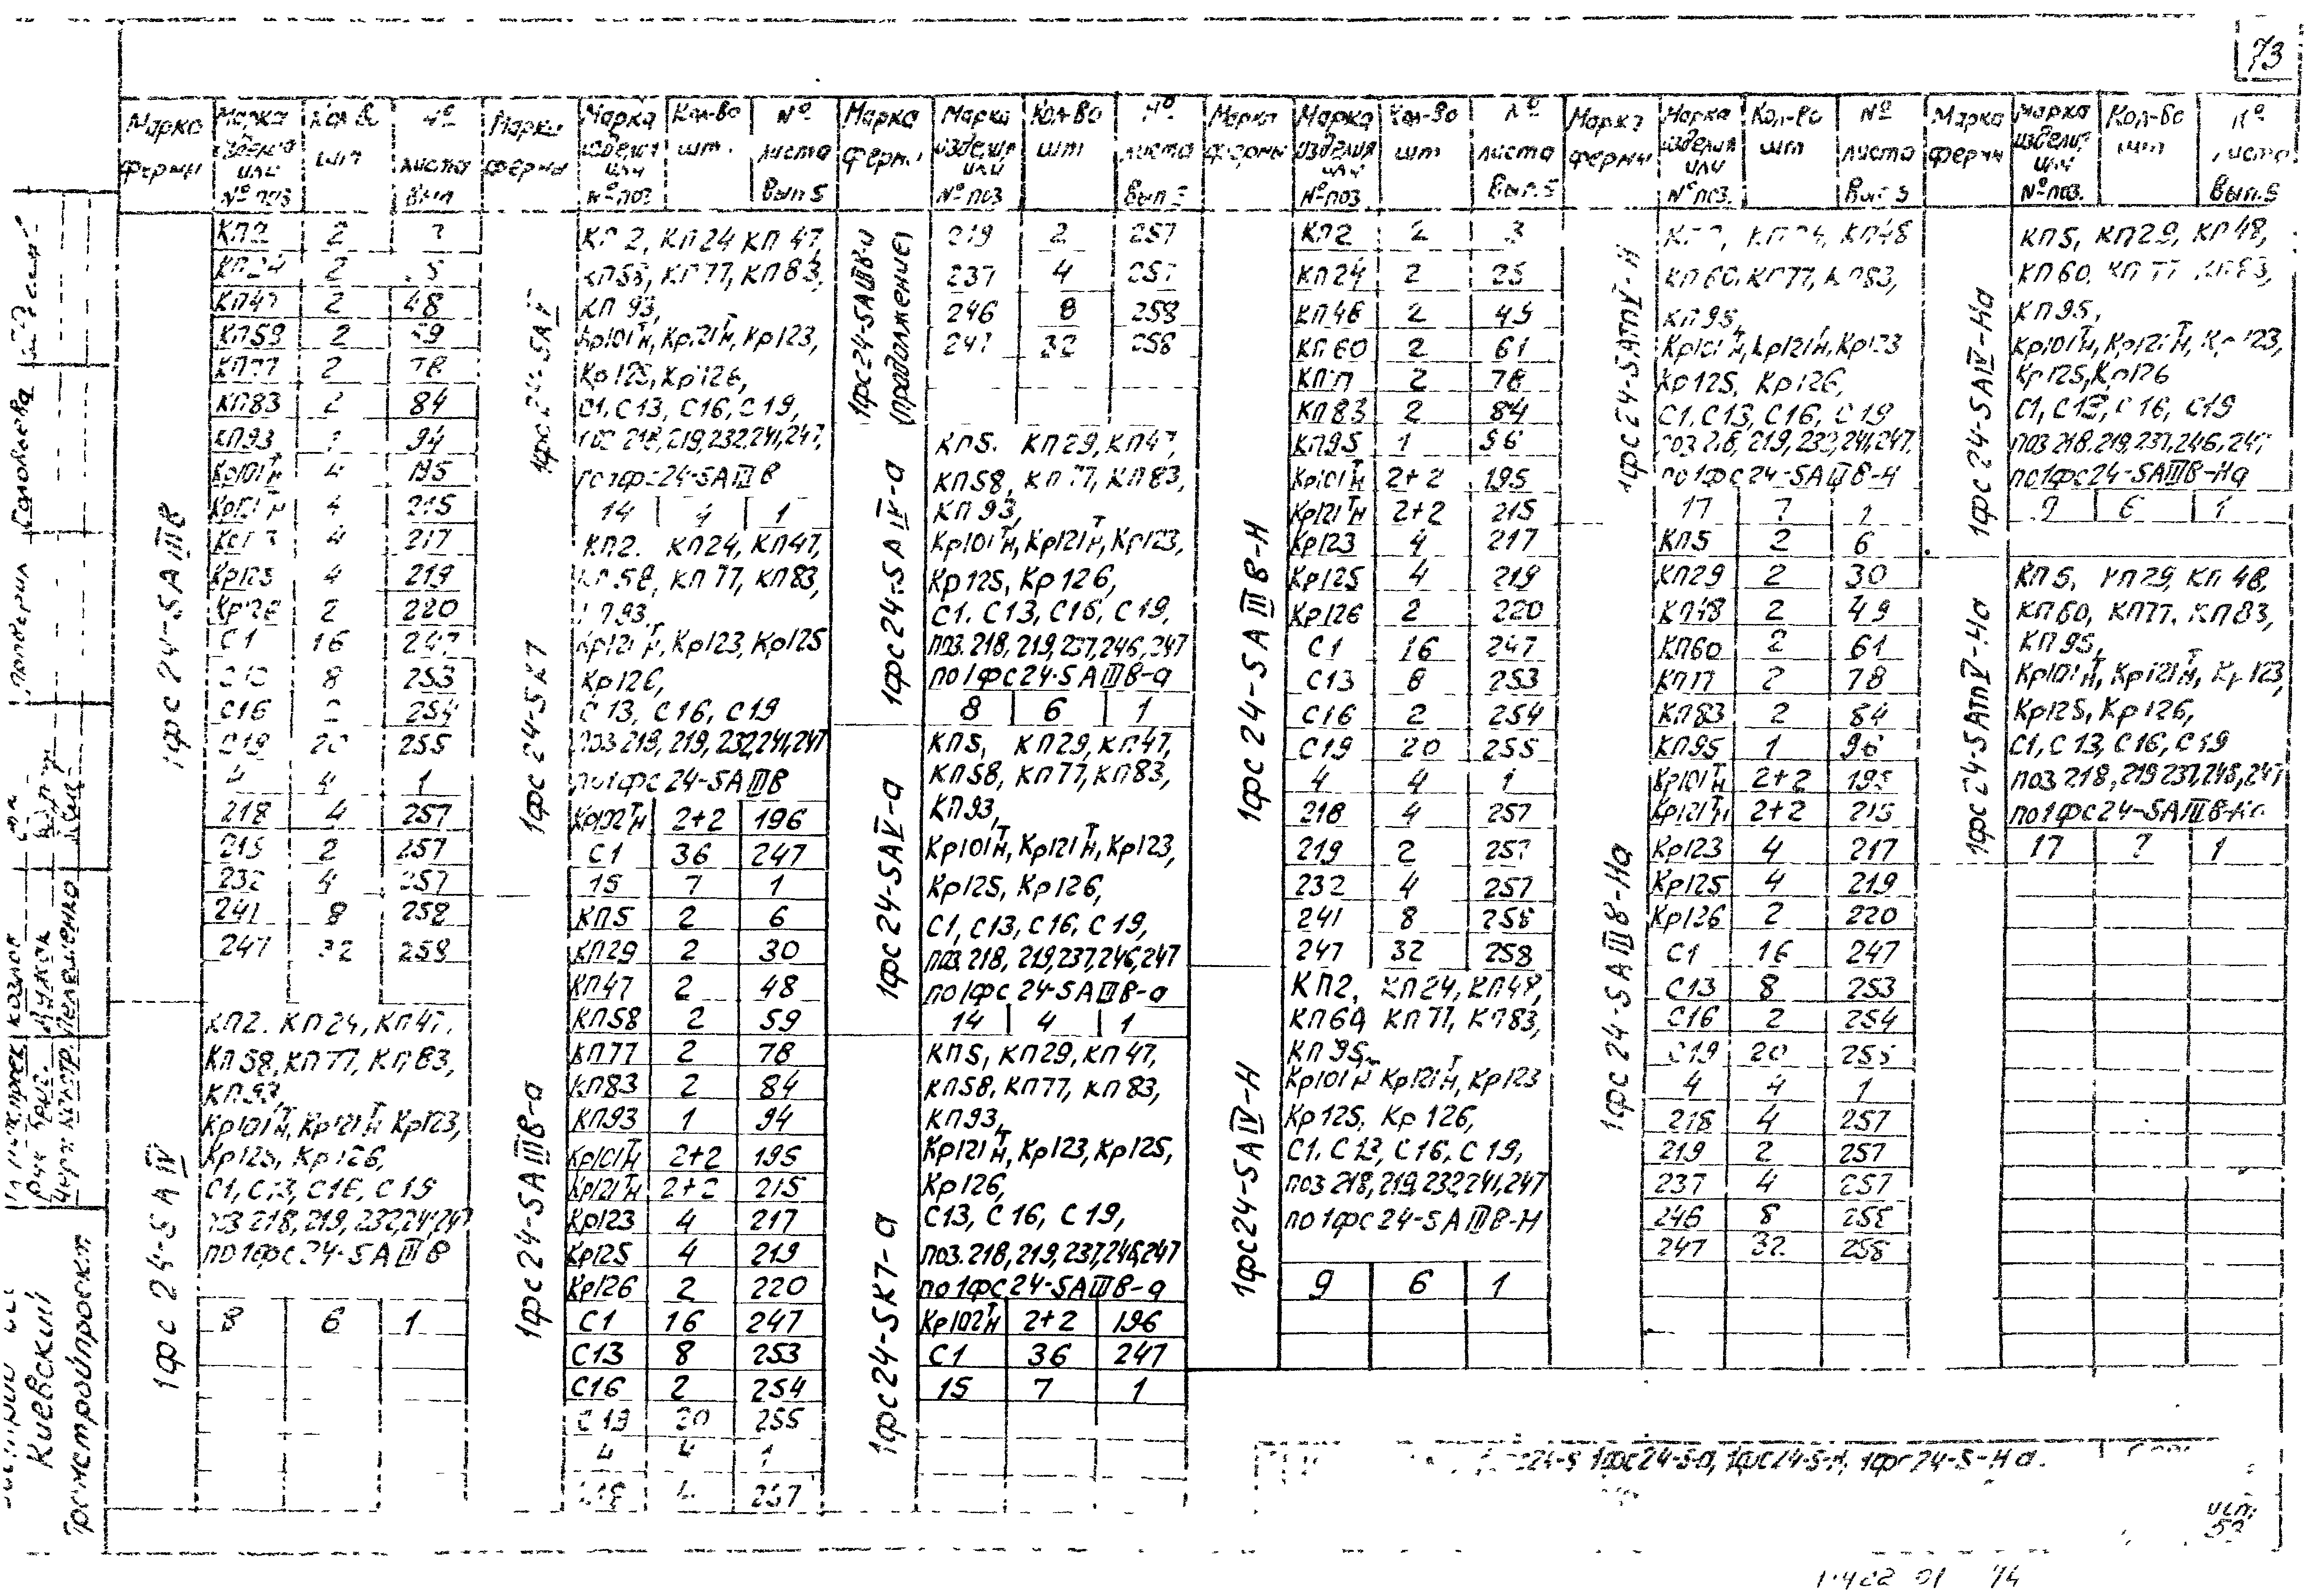 73
Марка фермы | Марка изделия или № поз | Кол-во шт | № листа Вып
1фс 24-5АIIIв
КП2 2
КП24 2
КП47 2 48
КП59 2 59
КП77 2 78
КП83 2 84
КП93 94
Кр101Тн 4 195
Кр121Тн 4 215
4 217
Кр125 4 219
Кр126 2 220
С1 16 247
8 253
С16 254
С19 20 255
4 4 1
218 4 257
219 2 257
232 4 257
241 8 258
247 32 258
1фс 24-5АIV
КП2. КП24, КП47.
КП58, КП77, КП83,
КП93,
Кр101Тн, Кр121Тн Кр123,
Кр125, Кр126,
С1, С13, С16, С19
поз 218, 219, 232, 241, 247
по 1фс 24-5АIIIв
8 6 1
Марка фермы | Марка изделия или № поз | Кол-во шт. | № листа Вып 5
1фс 24-5АV
КП2, КП24 КП47,
КП58, КП77, КП83,
КП93,
Кр101Тн, Кр121Тн, Кр123,
Кр125, Кр126,
С1, С13, С16, С19,
поз 218, 219, 232, 241, 247,
по 1фс 24-5АIIIв
14 4 1
1фс 24-5К7
КП2. КП24, КП47,
КП58, КП77, КП83,
КП93,
Кр121Тн, Кр123, Кр125
Кр126,
С13, С16, С19
поз 218, 219, 232, 241, 247
по 1фс 24-5АIIIв
Кр102Тн 2+2 196
С1 36 247
15 7 1
1фс 24-5АIIIв-а
КП5 2 6
КП29 2 30
КП47 2 48
КП58 2 59
КП77 2 78
КП83 2 84
КП93 1 94
Кр101Тн 2+2 195
Кр121Тн 2+2 215
Кр123 4 217
Кр125 4 219
Кр126 2 220
С1 16 247
С13 8 253
С16 2 254
С19 20 255
4 4 1
218 4 257
Марка фермы | Марка изделия или № поз | Кол-во шт | № листа Вып 5
1фс 24-5АIIIв-а (продолжение)
219 2 257
237 4 257
246 8 258
247 32 258
1фс 24-5АIV-а
КП5. КП29, КП47,
КП58, КП77, КП83,
КП93,
Кр101Тн, Кр121Тн, Кр123,
Кр125, Кр126,
С1. С13, С16, С19,
поз. 218, 219, 237, 246, 247
по 1фс 24-5АIIIв-а
8 6 1
1фс 24-5АV-а
КП5, КП29, КП47,
КП58, КП77, КП83,
КП93,
Кр101Тн, Кр121Тн, Кр123,
Кр125, Кр126,
С1, С13, С16, С19,
поз. 218, 219, 237, 246, 247
по 1фс 24-5АIIIв-а
14 4 1
1фс 24-5К7-а
КП5, КП29, КП47,
КП58, КП77, КП83,
КП93,
Кр121Тн, Кр123, Кр125,
Кр126,
С13, С16, С19,
поз. 218, 219, 237, 246, 247
по 1фс 24-5АIIIв-а
Кр102Тн 2+2 196
С1 36 247
15 7 1
Марка фермы | Марка изделия или № поз | Кол-во шт | № листа Вып. 5
1фс 24-5АIIIв-Н
КП2 2 3
КП24 2 25
КП48 2 49
КП60 2 61
КП77 2 78
КП83 2 84
КП95 1 96
Кр101Тн 2+2 195
Кр121Тн 2+2 215
Кр123 4 217
Кр125 4 219
Кр126 2 220
С1 16 247
С13 8 253
С16 2 254
С19 20 255
4 4 1
218 4 257
219 2 257
232 4 257
241 8 258
247 32 258
1фс 24-5АIV-Н
КП2, КП24, КП48,
КП60, КП77, КП83,
КП95,
Кр101Тн Кр121Тн, Кр123
Кр125, Кр126,
С1, С13, С16, С19,
поз 218, 219, 232, 241, 247
по 1фс 24-5АIIIв-Н
9 6 1
Марка фермы | Марка изделия или № поз. | Кол-во шт | № листа Вып 5
1фс 24-5АтV-Н
КП2, КП24, КП48
КП60, КП77, КП83,
КП95,
Кр101Тн, Кр121Тн, Кр123
Кр125, Кр126,
С1, С13, С16, С19
поз 218, 219, 232, 241, 247,
по 1фс 24-5АIIIв-Н
17 7 1
1фс 24-5АIIIв-На
КП5 2 6
КП29 2 30
КП48 2 49
КП60 2 61
КП77 2 78
КП83 2 84
КП95 1 96
Кр101Тн 2+2 195
Кр121Тн 2+2 215
Кр123 4 217
Кр125 4 219
Кр126 2 220
С1 16 247
С13 8 253
С16 2 254
С19 20 255
4 4 1
218 4 257
219 2 257
237 4 257
246 8 258
247 32 258
Марка фермы | Марка изделия или № поз. | Кол-во шт | № листа Вып. 5
1фс 24-5АIV-На
КП5, КП29, КП48,
КП60, КП77 КП83,
КП95,
Кр101Тн, Кр121Тн, Кр123,
Кр125, Кр126
С1, С13, С16, С19
поз 218, 219, 237, 246, 247
по 1фс 24-5АIIIв-На
9 6 1
1фс 24-5АтV-На
КП5, КП29, КП48,
КП60, КП77, КП83,
КП95,
Кр101Тн, Кр121Тн, Кр123,
Кр125, Кр126,
С1, С13, С16, С19
поз 218, 219 237, 246, 247
по 1фс 24-5АIIIв-На
17 7 1
24-5 1фс24-5-а, 1фс24-5-Н, 1фс24-5-На.
Киевский
Промстройпроект
проверил Соловьева
Козлов
Пелешенко
74